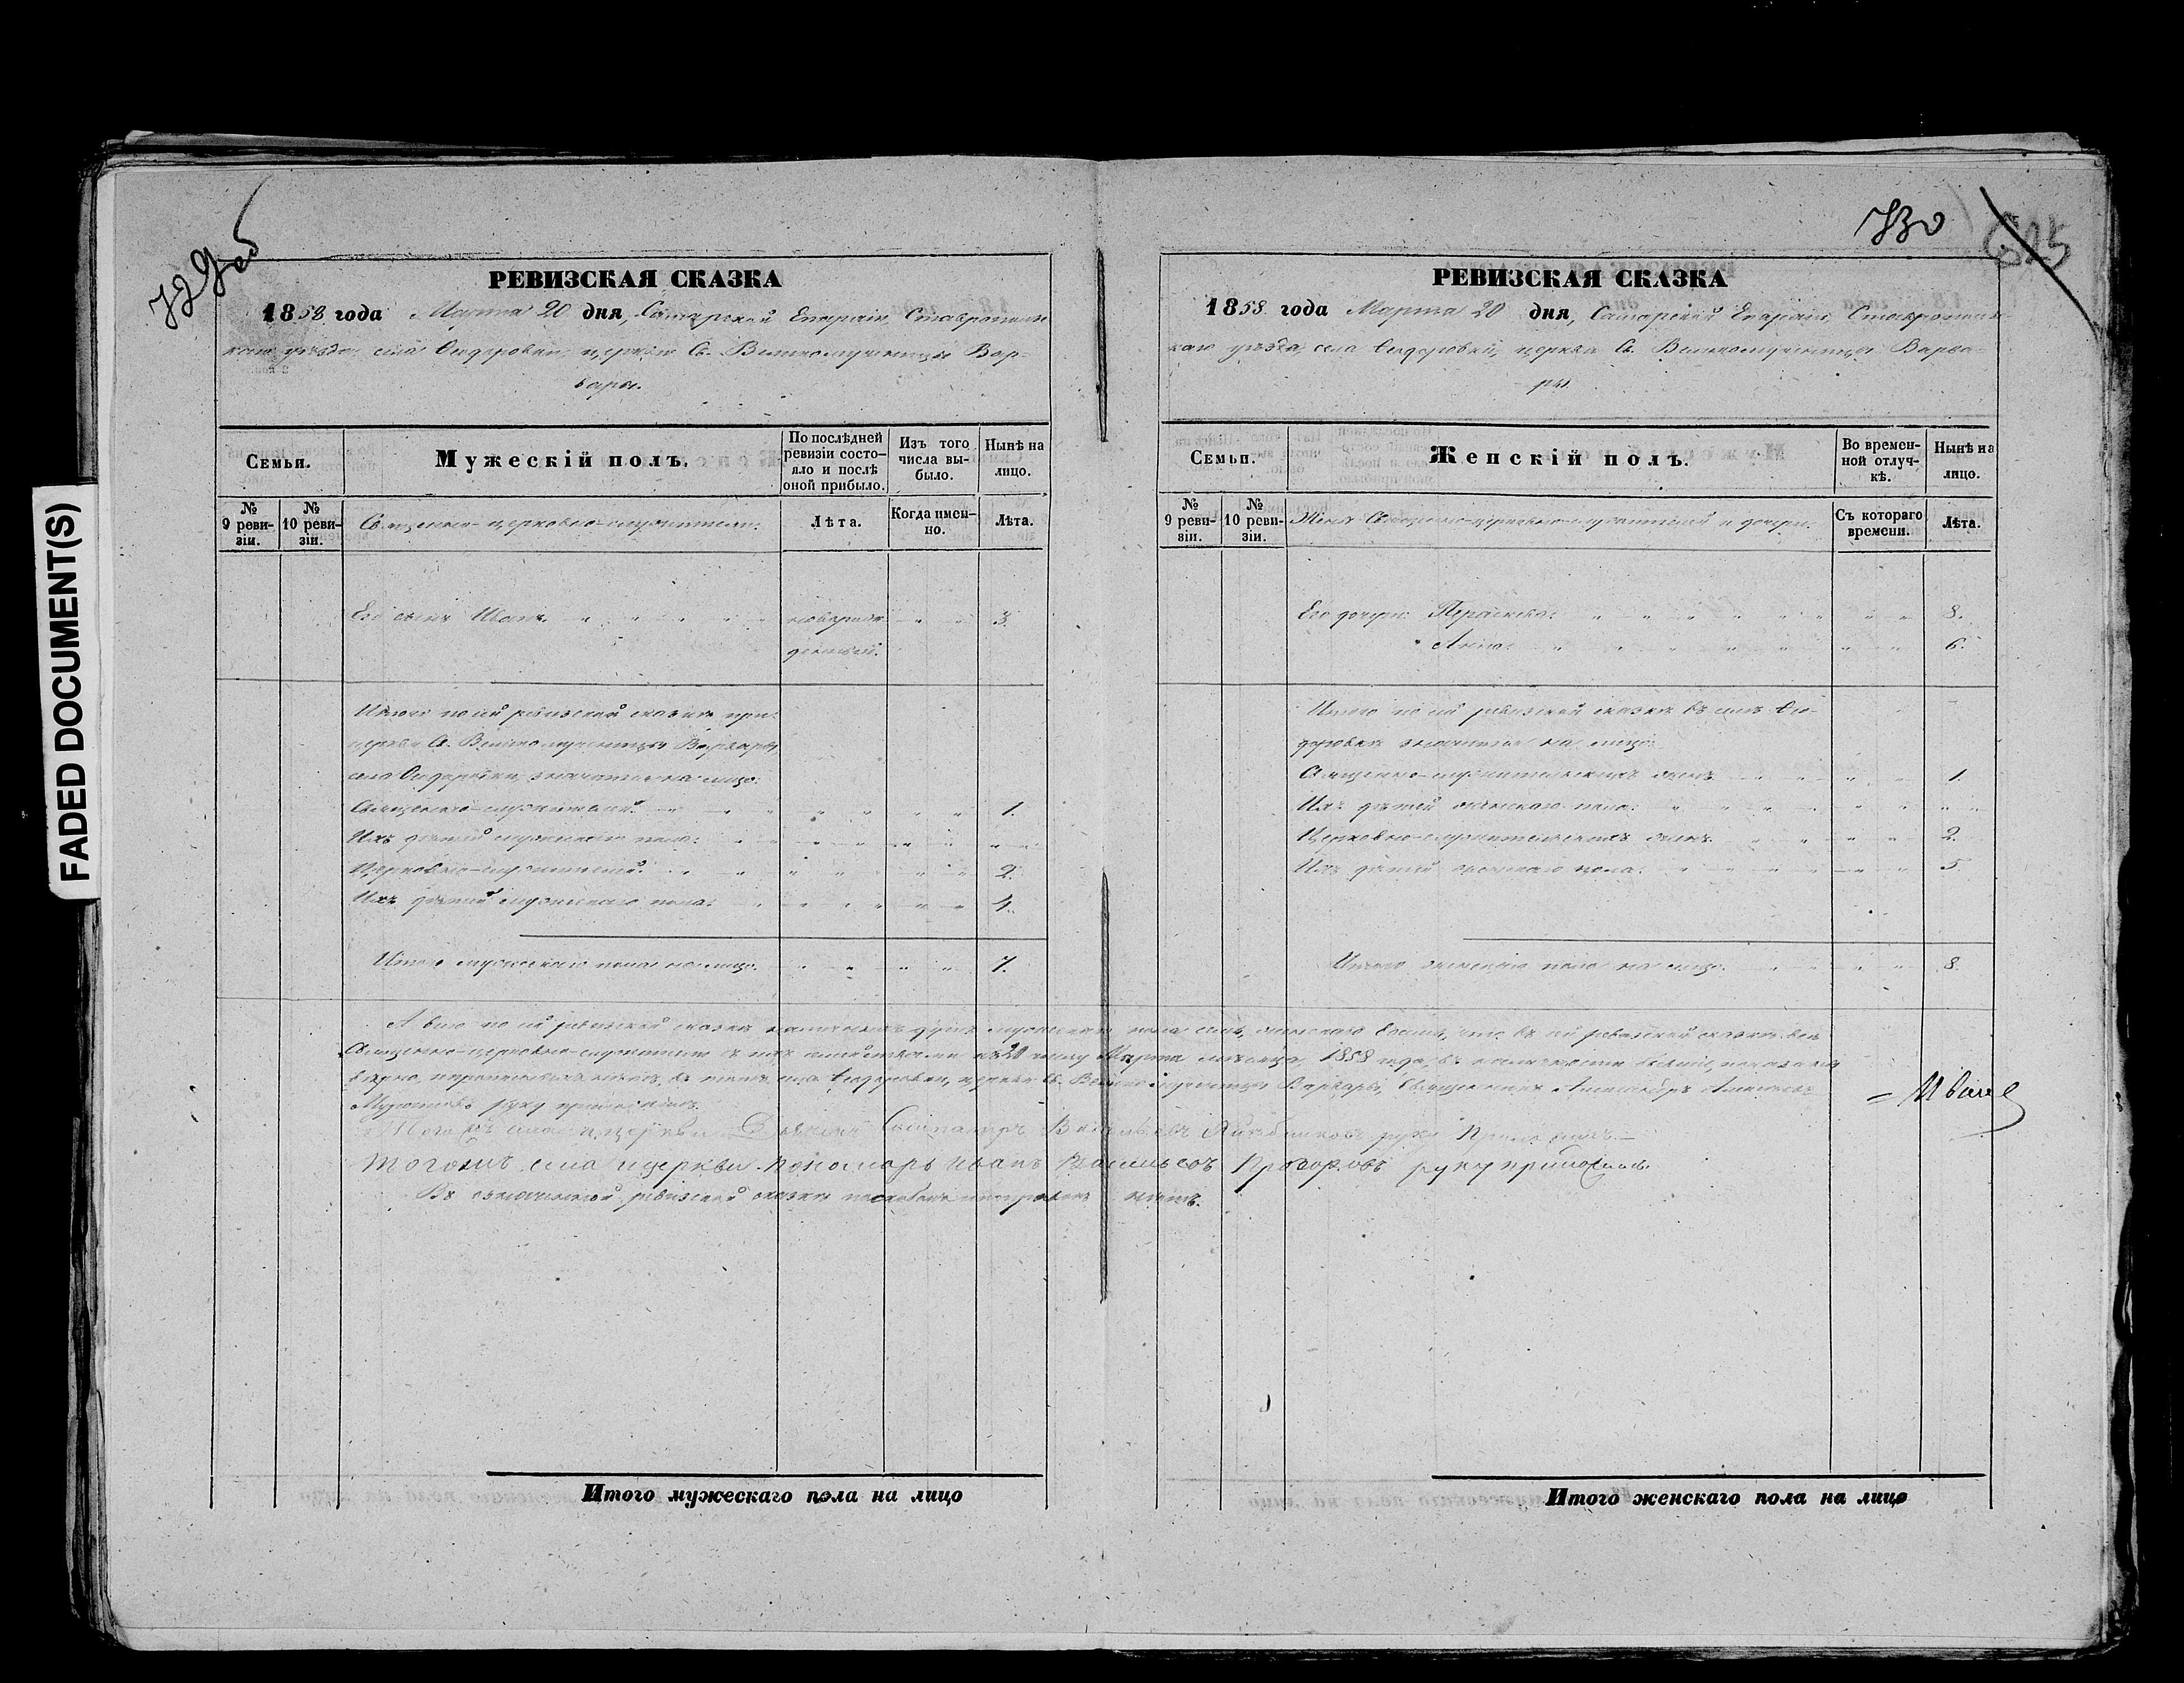 FADED DOCUMENT(S)
729об
РЕВИЗСКАЯ СКАЗКА
1858 года Марта 20 дня, Самарской Епархіи, Ставрополь-
скаго уѣзда, села Ѳедоровки, церкви Св. Великомученицы Вар-
вары.
Семьи.
Мужескій полъ.
По послѣдней ревизіи состо-
яло и послѣ оной прибыло.
Изъ того числа вы-
было.
Нынѣ на лицо.
№ 9 реви-
зіи.
№ 10 реви-
зіи.
Священно-церковно-служители.
Лѣта.
Когда имен-
но.
Лѣта.
Его сынъ Иванъ. новорож- 3.
денный.
Итого по сей ревизской сказкѣ при
церкви Св. Великомученицы Варвары,
села Ѳедоровки, значится на лицо:
Священно-служителей. 1.
Ихъ дѣтей мужескаго пола:
Церковно-служителей. 2.
Ихъ дѣтей мужескаго пола: 4.
Итого мужескаго пола на лицо. 7.
730
615
РЕВИЗСКАЯ СКАЗКА
1858 года Марта 20 дня, Самарской Епархіи, Ставрополь-
скаго уѣзда, села Ѳедоровки, церкви Св. Великомученицы Варва-
ры.
Семьи.
Женскій полъ.
Во времен-
ной отлуч-
кѣ.
Нынѣ на лицо.
№ 9 реви-
зіи.
№ 10 реви-
зіи.
Жены Священно-церковно-служителей и дочери.
Съ котораго времени.
Лѣта.
Его дочери: Параскева. 8.
Анна. 6.
Итого по сей ревизской сказкѣ въ селѣ Ѳе-
доровкѣ значится на лицо:
Священно-служительскихъ женъ 1.
Ихъ дѣтей женскаго пола:
Церковно-служительскихъ женъ. 2.
Ихъ дѣтей женскаго пола: 5.
Итого женскаго пола на лицо. 8.
А всего по сей ревизской сказкѣ наличныхъ душъ мужескаго пола семь, женскаго восемь, что въ сей ревизской сказкѣ всѣ
Священно-церковно-служители съ ихъ семействами къ 20 числу Марта мѣсяца, 1858 года, въ наличности бывшіе, показаны
вѣрно, и прописныхъ нѣтъ, въ томъ села Ѳедоровки, церкви Св. Великомученицы Варвары, Священникъ Александръ
руку приложилъ.
Тогожъ села и церкви руку приложилъ.
Тогожъ села и церкви пономарь Иванъ Васильевъ Прозоровъ руку приложилъ.
Въ означенной ревизской сказкѣ поскобокъ и поправокъ нѣтъ.
Итого мужескаго пола на лицо
Итого женскаго пола на лицо